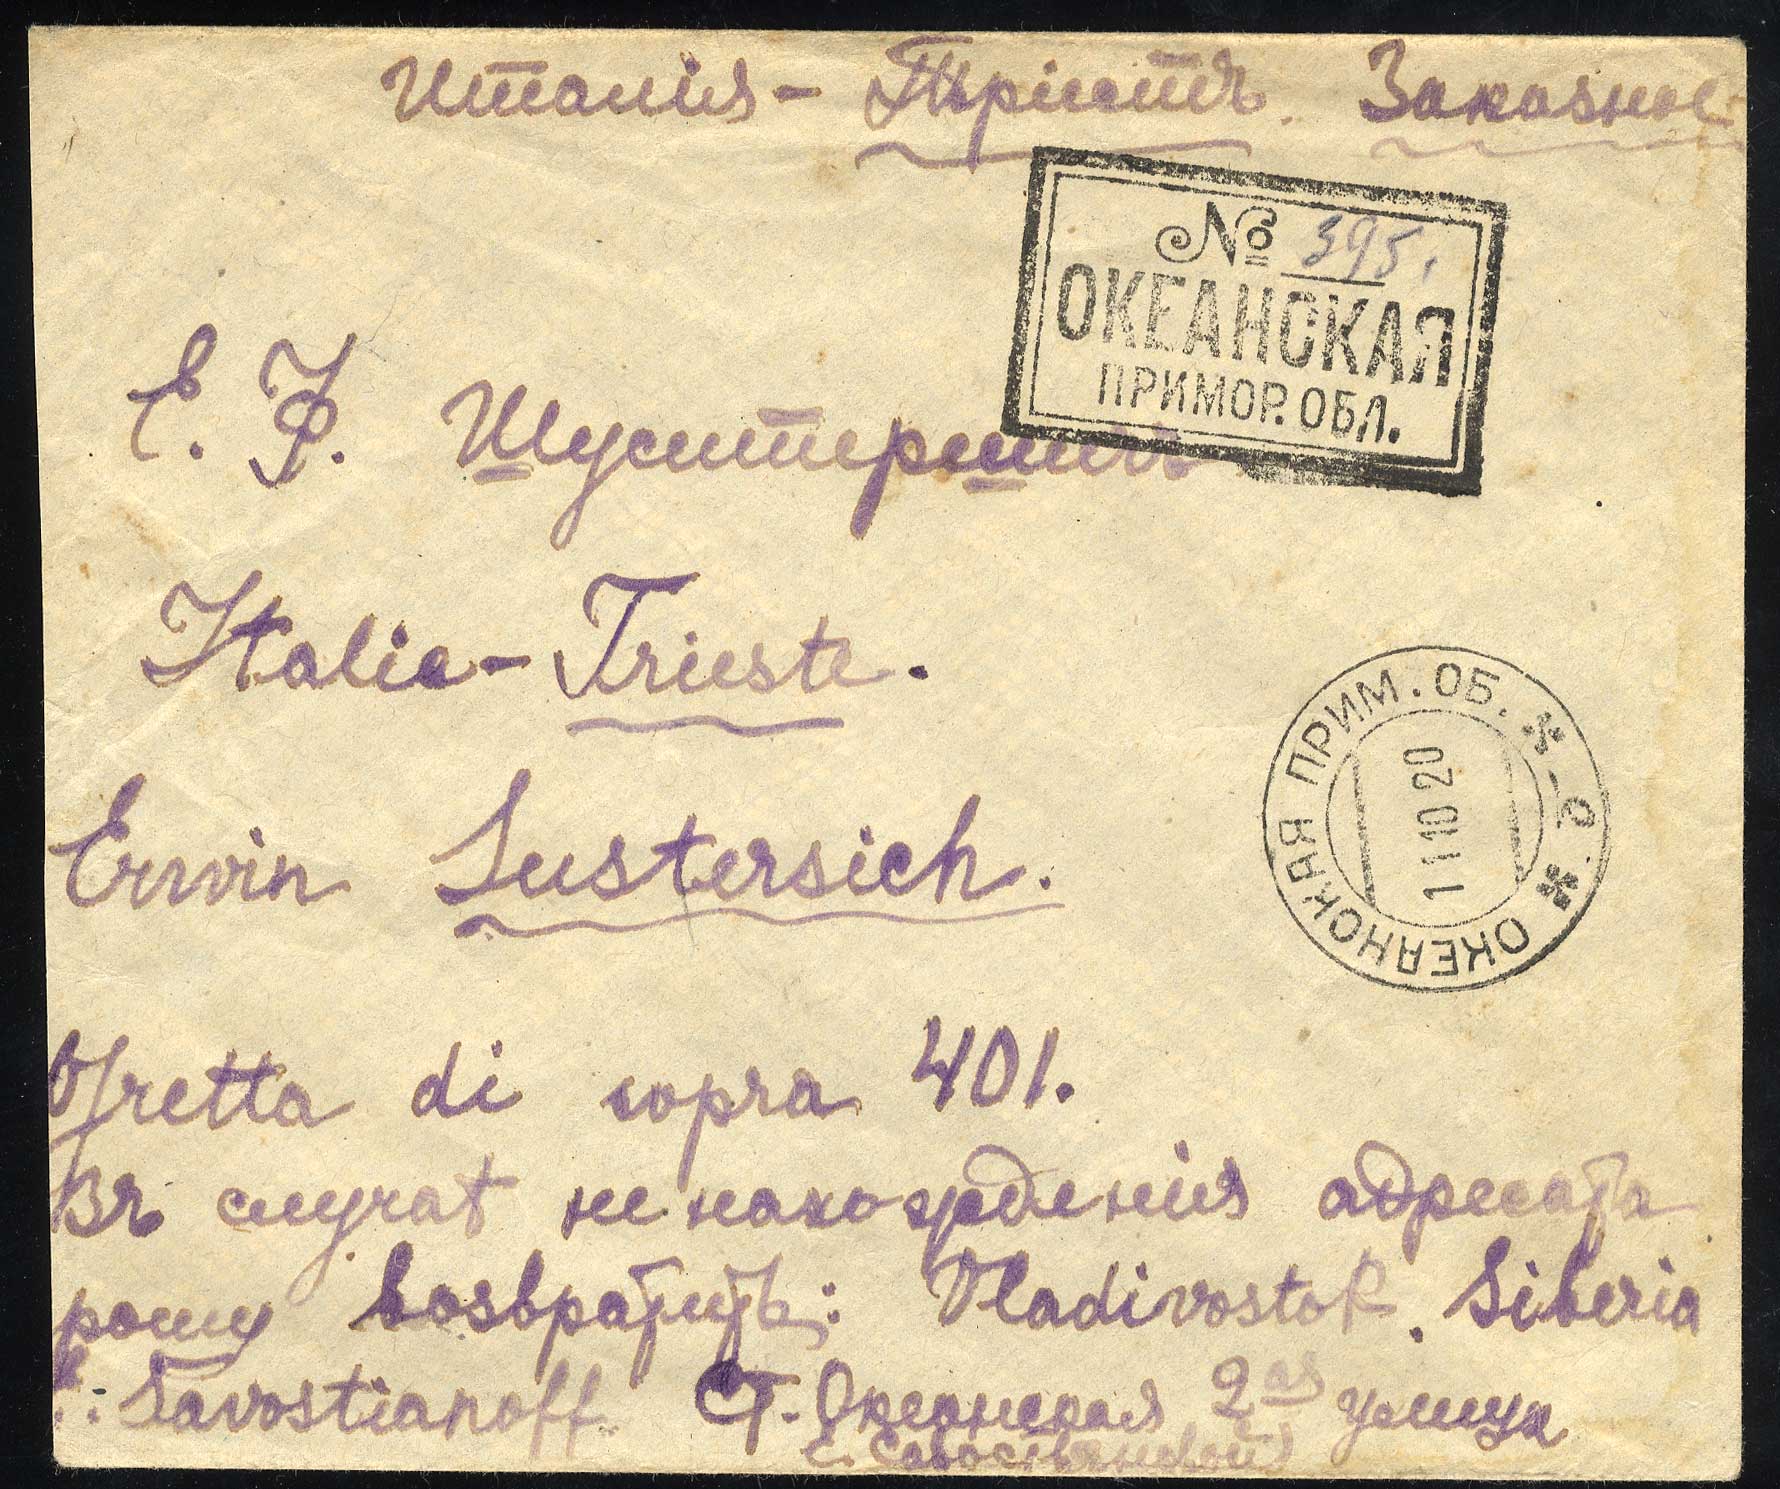 Италія - Тріестъ. Заказное
№ 395.
ОКЕАНСКАЯ
ПРИМОР. ОБЛ.
Е. Ф. Шустершичъ
Italia - Trieste.
ОКЕАНСКАЯ ПРИМ. ОБ. * а * 
1 11020
Erwin Sustersich.
di sopra 401.
Въ случаѣ не нахожденія адресата
прошу возвратить: Vladivostok. Siberia
Savostianoff. Ст. Океанская 2ая улица
Е. Савостьяновой